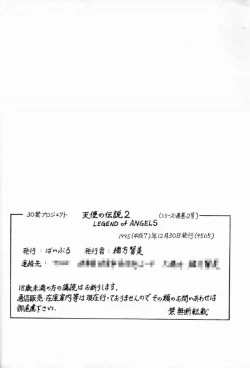 30禁プロジェクト 天使の伝説2 (シリーズ通巻2号)
LEGEND of ANGELS
1995(平成7)年12月30日発行(950部)
発行:ぱのぷる 発行者:緒方賢美
連絡先:
18歳未満の方の購読はお断りします。
通信販売・在庫案内等は現在行っておりませんのでその類のお問いあわせは
御遠慮下さい。
禁無断転載